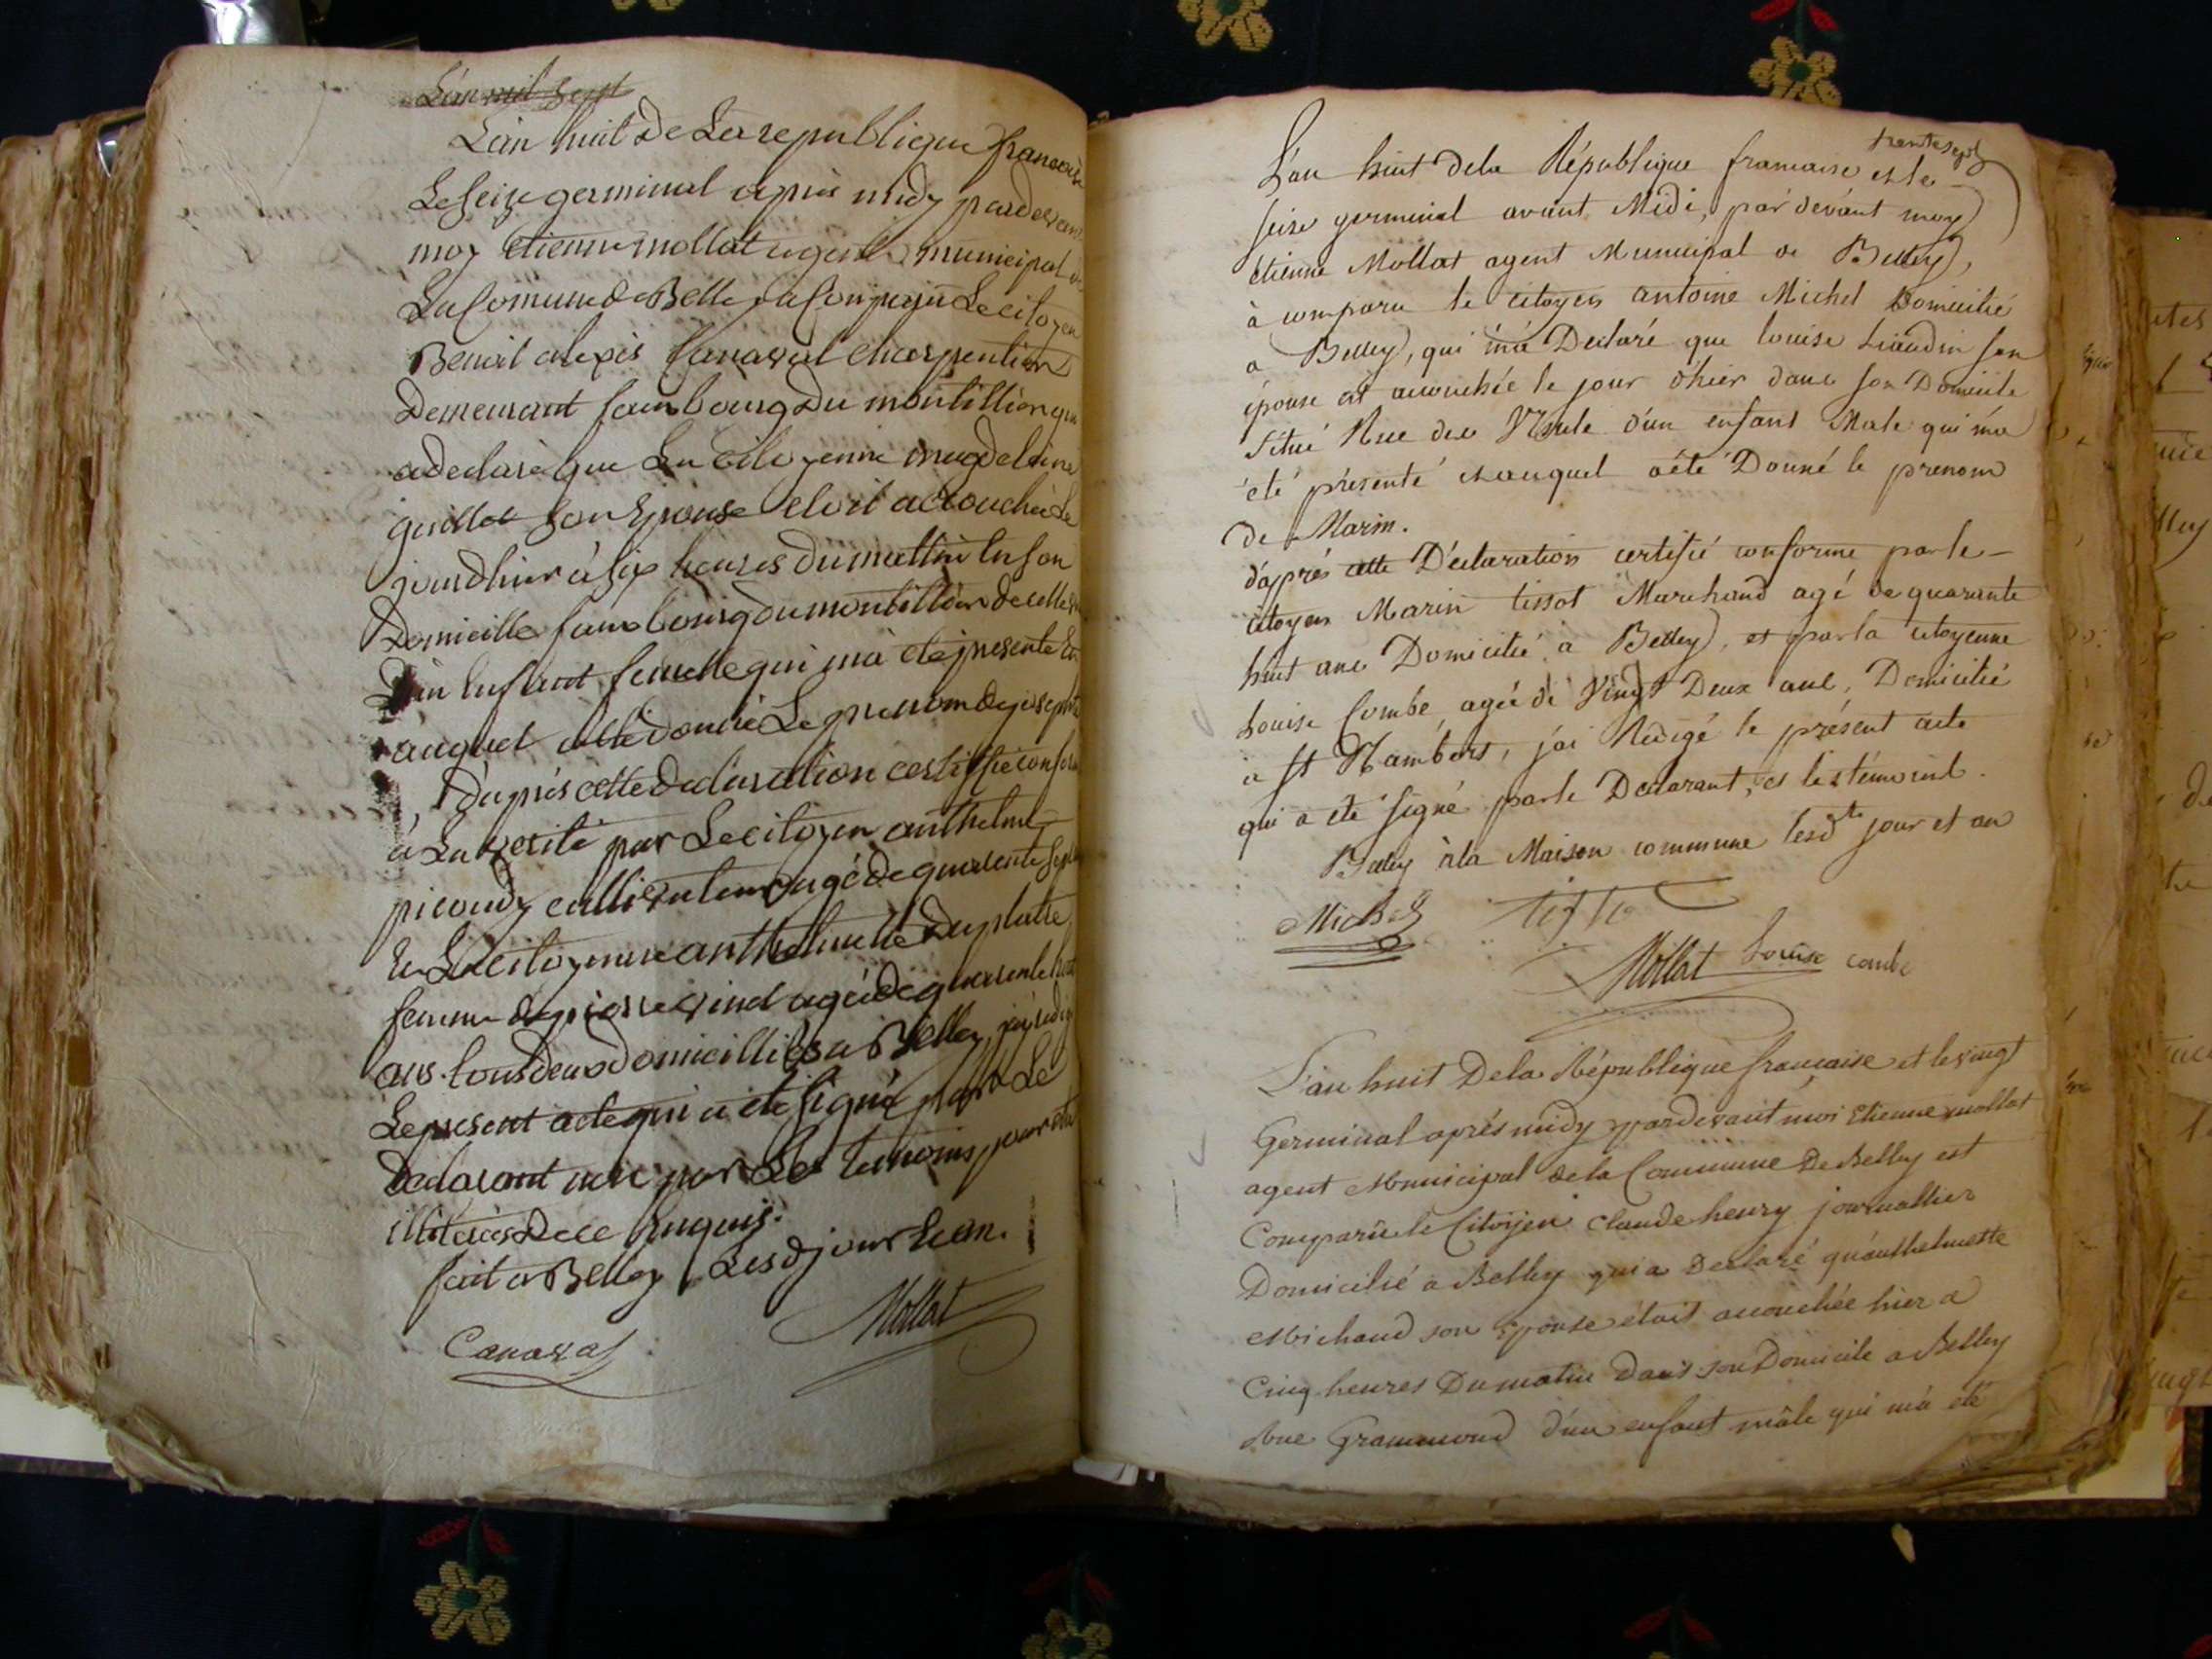 L'an mil sept
L'an huit de La republique francaise
Le seize germinal apres midy pardevant
moy etienne mollat agent municipal de
La Comune de Belley a Comparu Le citoyen
Benoit alexis Canaval charpentier
Demeurant fauxbourg du montillier qui
a declaré que La citoyenne magdelaine
guillot son Epouse etoit accouchée Le
jour dhier à six heures du mattin en son
Domicille fauxbourg du montillier de cette
D'un Enfant femelle qui m'a eté presenté Et
auquel a eté donné Le prenom de josephte
D'après cette declaration certiffié conforme
à La verité par Le citoyen anthelme
picoudy cultivateur agé de quarente sept
Et La citoyenne anthelmette Duplatre
femme de pierre vinet agée de quarente huit
ans. tous deux domicilliés a Belley, jay redigé
Le present acte qui a eté signé par Le
Declarant non par Les temoins pour etre
illiterés de ce Enquis.
fait a Belley Lesd jour Et an.
Canaval Mollat
trente sept
L'an huit dela République francaise et le
seize germinal avant Midi, par devant moy
etienne Mollat agent Municipal de Belley,
à comparu le citoyen antoine Michel Domicilié
a Belley, qui m'a Declaré que louise Liaudin son
épouse est accouchée le jour d'hier dans son Domicile
situé Rue des Ursule d'un enfant Male qui m'a
été présenté et auquel a été Donné le prenom
de Marin.
d'après cette Déclaration certifié conforme par le
citoyen Marin tissot Marchand agé de quarante
huit ans Domicilié à Belley, et par la citoyenne
Louise Combe, agée de Vingt Deux ans, Domicilié
a St Rambert, j'ai Rédigé le présent acte
qui a été signé par le Déclarant, et les témoins.
Belley à la Maison commune lesdts jour et an
Michel tissot
Mollat Louise combe
L'an huit Dela République française et le vingt
Germinal après midy pardevant moi Etienne mollat
agent Municipal de la Commune De Belley est
Comparu le Citoyen claude henry journallier
Domicilié a Belley qui a Declaré qu'anthelmette
Michaud son Epouse étoit accouchée hier a
Cinq heures Du matin Dans son Domicile a Belley
Rue Grammond d'un enfant mâle qui m'a été